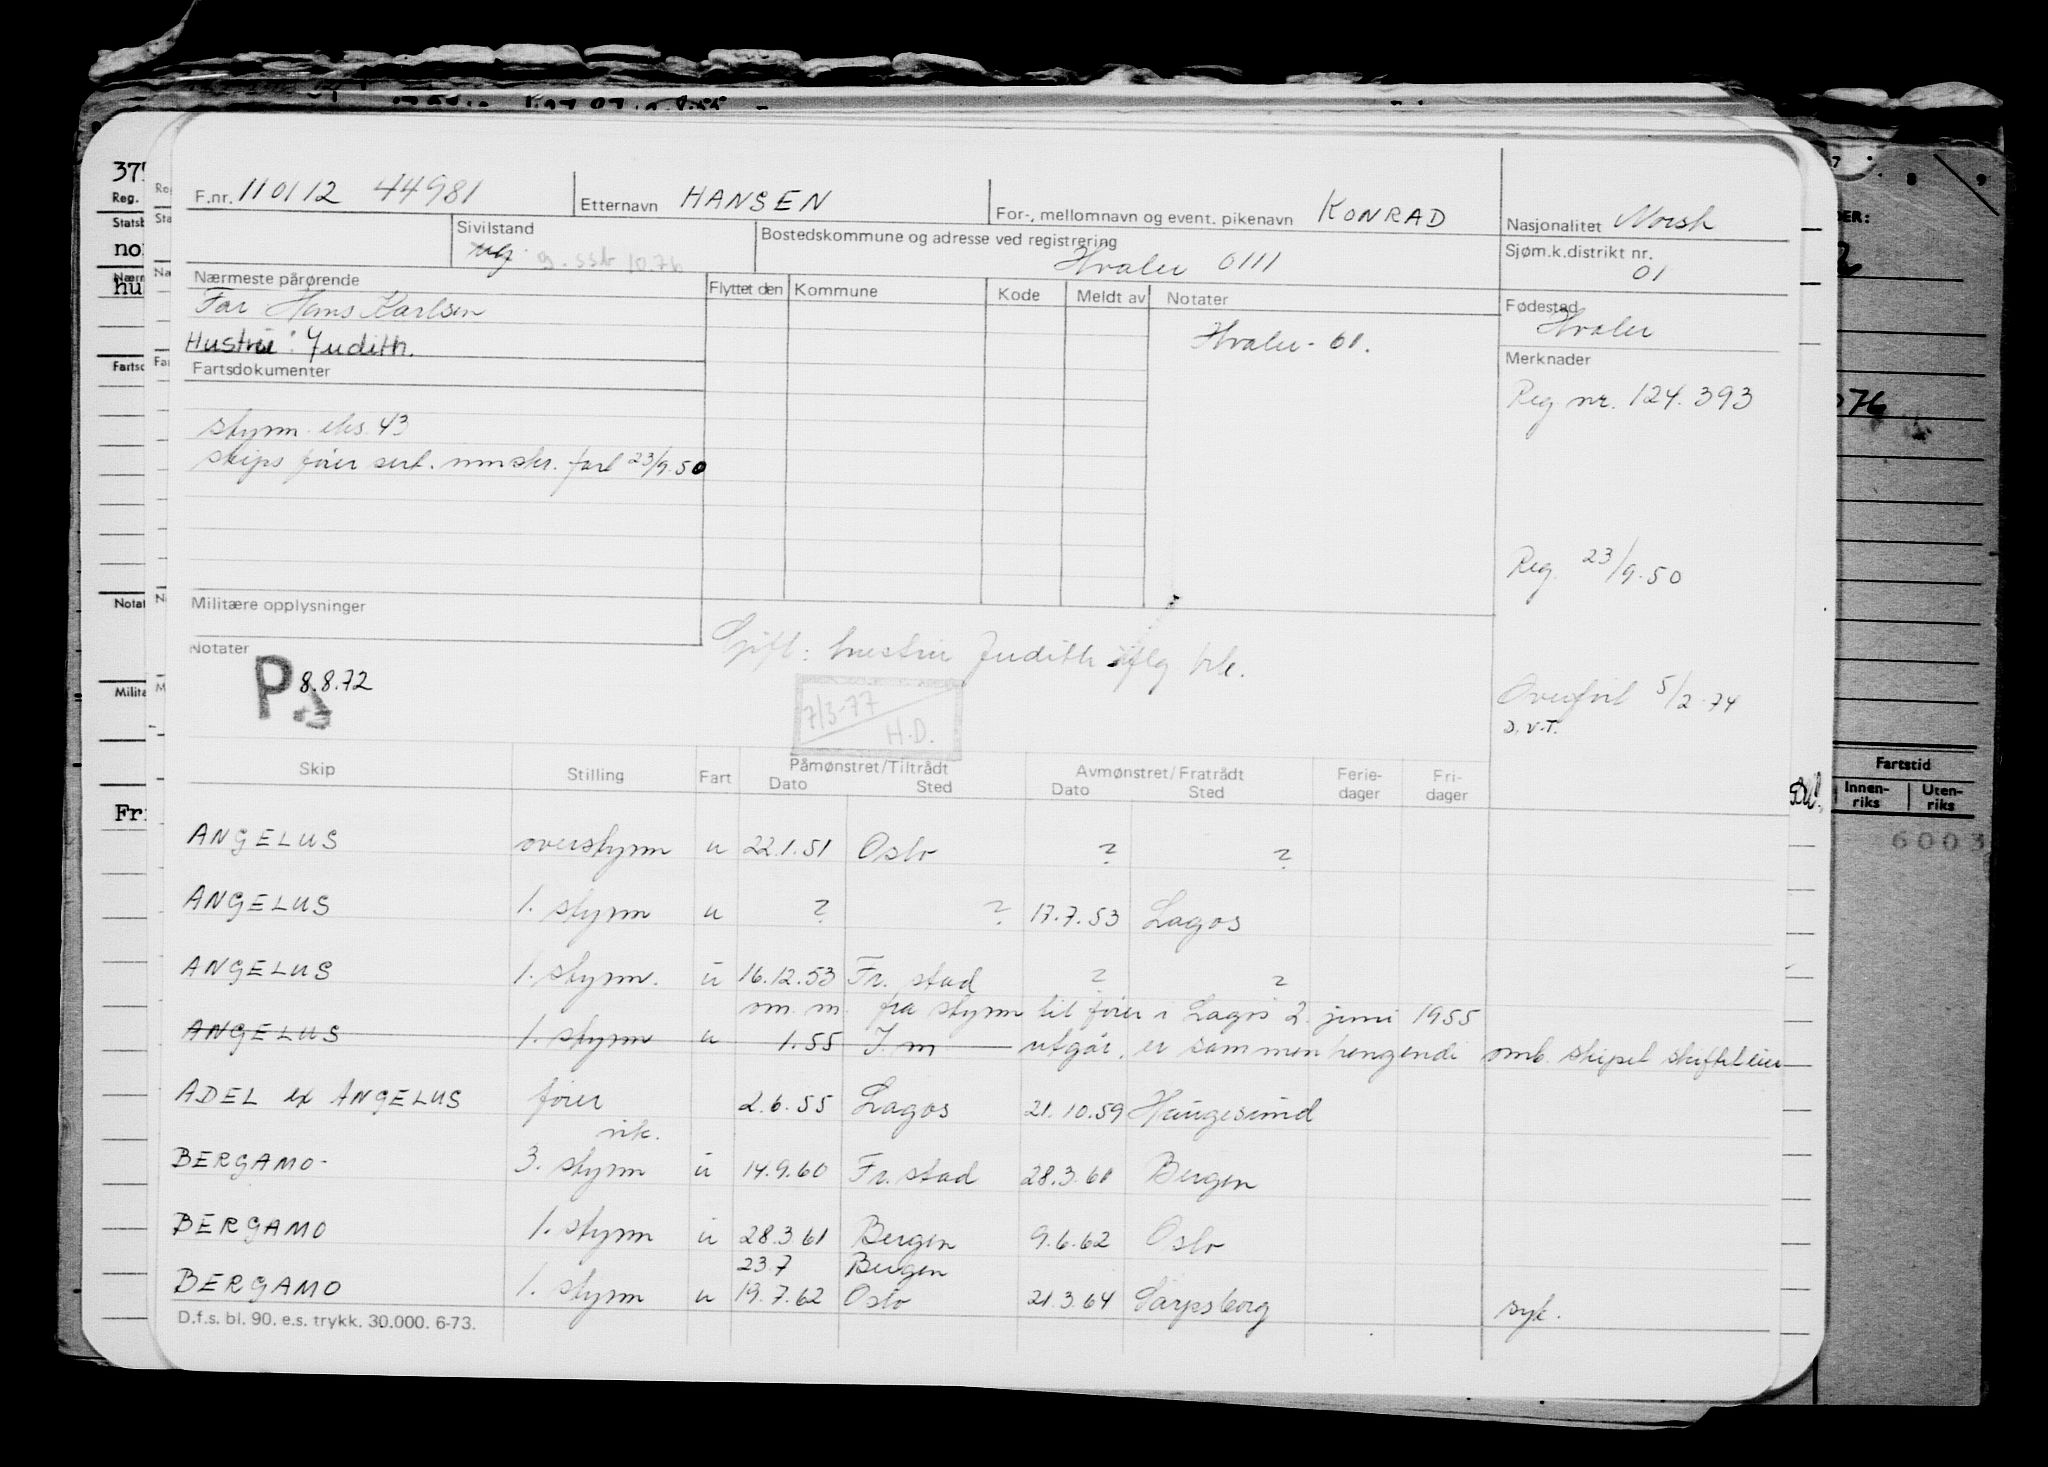 F.nr. 110112 44981 Etternavn HANSEN For-, mellomnavn og event. pikenavn KONRAD Nasjonalitet Norsk
Sivilstand ug g. ssb 10.76 Bostedskommune og adresse ved registrering Hvaler 0111 Sjøm.k.distrikt nr. 01
Nærmeste pårørende Flyttet den Kommune Kode Meldt av Notater Fødested Hvaler
Far Hans Karlsen
Hustru: Judith. Hvaler - 61.
Fartsdokumenter Merknader
Reg nr. 124.393
styrm. eks. 43
skips fører sert. fart 23/9.50
Reg. 23/9.50
Militære opplysninger
Notater
Gift: hustru Judith iflg
P 8.8.72
Overført 5/2-74
D.V.T.
7/3-77
H.D.
Skip Stilling Fart Påmønstret/Tiltrådt Dato Sted Avmønstret/Fratrådt Dato Sted Ferie-dager Fri-dager
ANGELUS overstyrm u 22.1.51 Oslo ? ?
ANGELUS 1. styrm u ? ? 17.7.53 Lagos
ANGELUS 1. styrm. u 16.12.53 Fr. stad ? ?
om. m. fra styrm til fører i Lagos 2. juni 1955
ANGELUS 1. styrm u 1.55 I.m utgår, er sammenhengende omb. skipet
ADEL ex ANGELUS fører 2.6.55 Lagos 21.10.59 Haugesund
vik.
BERGAMO- 3. styrm u 14.9.60 Fr. stad 28.3.61 Bergen
BERGAMO 1. styrm u 28.3 61 Bergen 9.6.62 Oslo
23.7 Bergen
BERGAMO 1. styrm u 19.7.62 Oslo 21.3.64 Sarpsborg syk.
D.f.s. bl. 90. e.s. trykk. 30.000. 6-73.
Reg.
Statsb
Fartsd
Notat
Milita
Fartstid
Innen-riks Uten-riks
6003